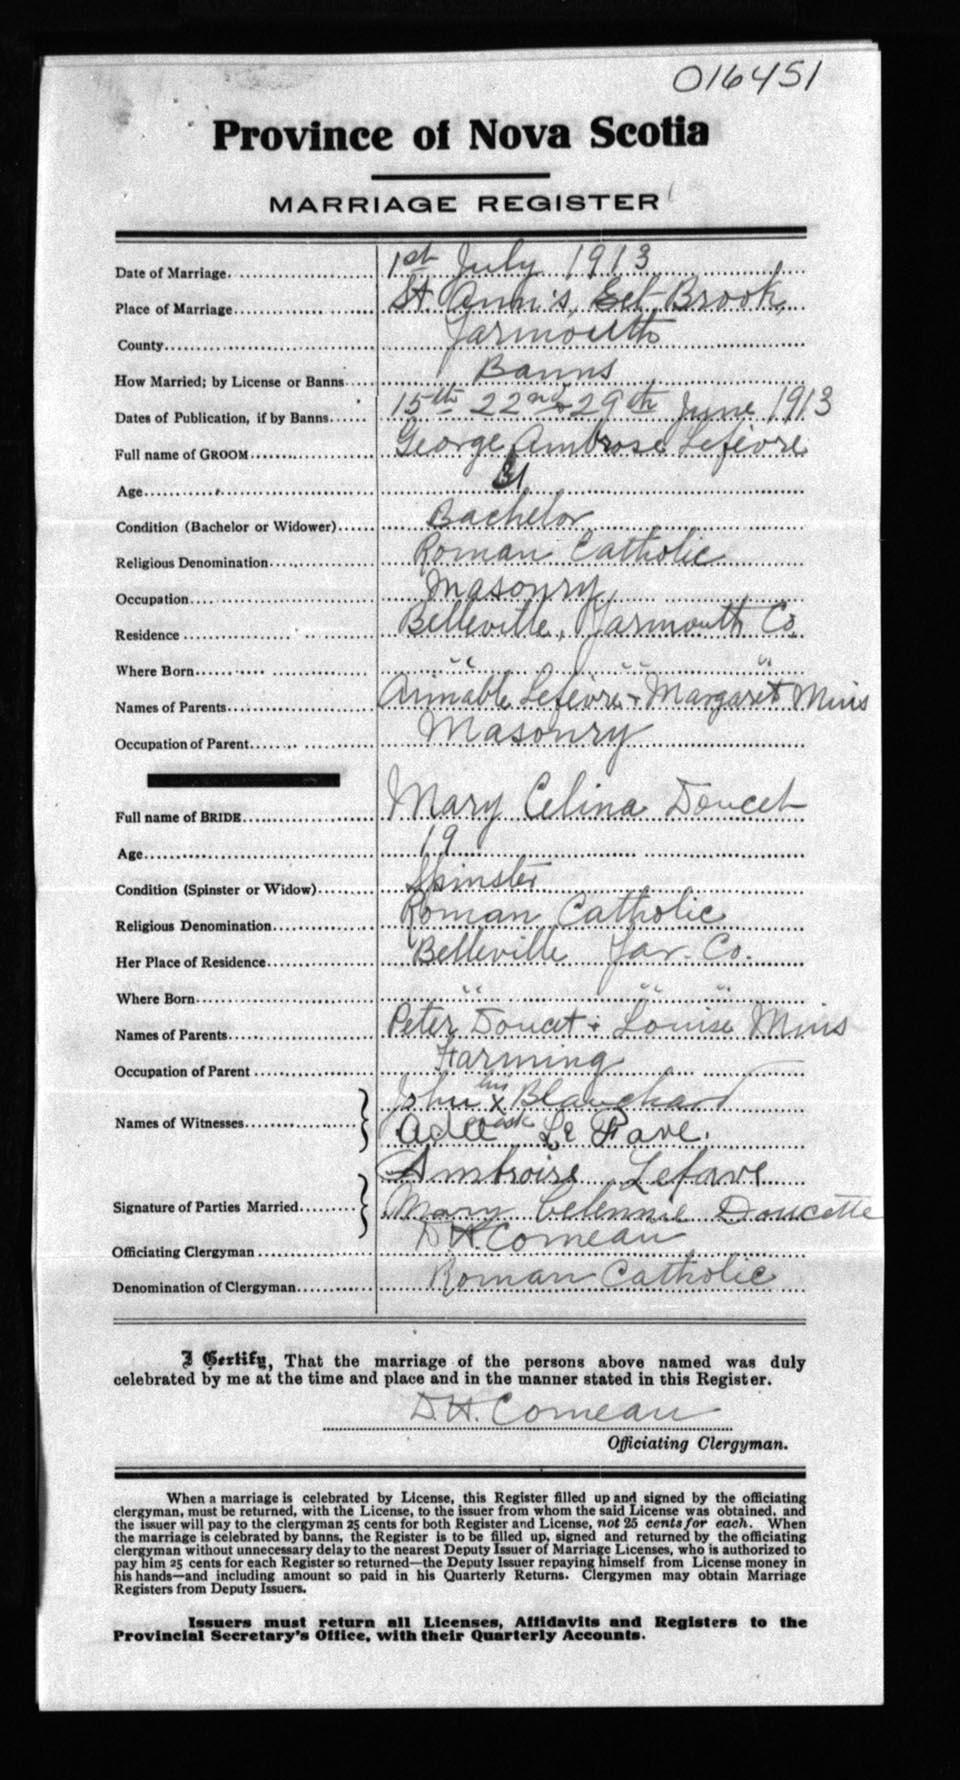 016451
Province of Nova Scotia
MARRIAGE REGISTER
Date of Marriage 1st July 1913
Place of Marriage St. Ann's, Eel Brook,
County Yarmouth
How Married; by License or Banns Banns
Dates of Publication, if by Banns 15th 22nd & 29th June 1913
Full name of GROOM George Ambrose Lefevre
Age
Condition (Bachelor or Widower) Bachelor
Religious Denomination Roman Catholic
Occupation Masonry
Residence Belleville, Yarmouth Co.
Where Born " " "
Names of Parents Aimable Lefevre & Margaret Mius
Occupation of Parent Masonry
Full name of BRIDE Mary Celina Doucet
Age 19
Condition (Spinster or Widow) Spinster
Religious Denomination Roman Catholic
Her Place of Residence Belleville Yar. Co.
Where Born " " "
Names of Parents Peter Doucet & Louise Mius
Occupation of Parent Farming
Names of Witnesses John his x mark Blanchard
Adee Le Fave.
Signature of Parties Married Ambroise Lefave
Mary Celennie Doucette
Officiating Clergyman D.H. Comeau
Denomination of Clergyman Roman Catholic
I Certify, That the marriage of the persons above named was duly
celebrated by me at the time and place and in the manner stated in this Register.
D.H. Comeau
Officiating Clergyman.
When a marriage is celebrated by License, this Register filled up and signed by the officiating
clergyman, must be returned, with the License, to the issuer from whom the said License was obtained, and
the issuer will pay to the clergyman 25 cents for both Register and License, not 25 cents for each. When
the marriage is celebrated by banns, the Register is to be filled up, signed and returned by the officiating
clergyman without unnecessary delay to the nearest Deputy Issuer of Marriage Licenses, who is authorized to
pay him 25 cents for each Register so returned—the Deputy Issuer repaying himself from License money in
his hands—and including amount so paid in his Quarterly Returns. Clergymen may obtain Marriage
Registers from Deputy Issuers.
Issuers must return all Licenses, Affidavits and Registers to the
Provincial Secretary's Office, with their Quarterly Accounts.